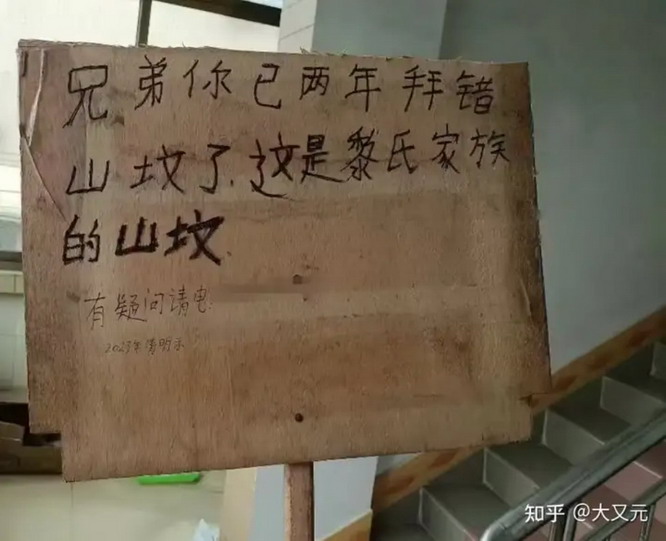 兄弟你已两年拜错
山坟了.这是黎氏家族
的山坟
有疑问请电:
2023年清明示
知乎 @大又元